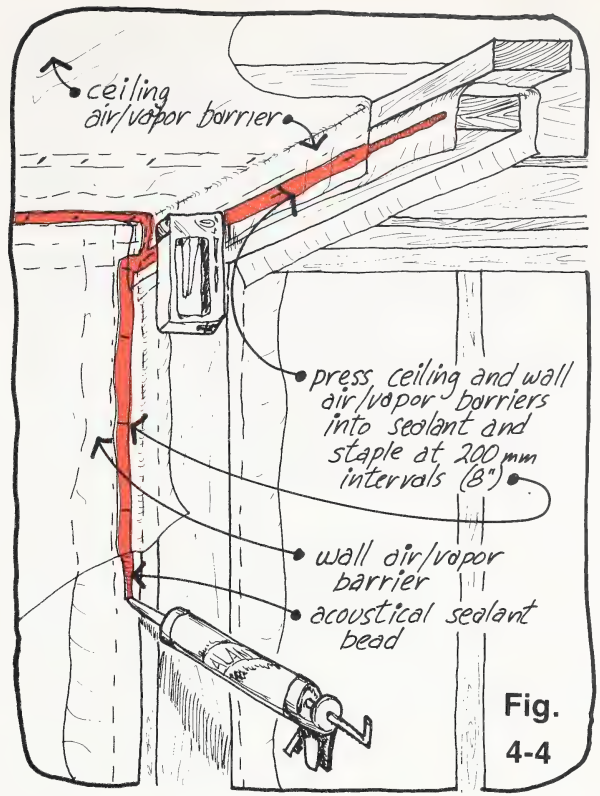 ceiling
air/vapor barrier
press ceiling and wall
air/vapor barriers
into sealant and
staple at 200 mm
intervals (8")
wall air/vapor
barrier
acoustical sealant
bead
Fig.
4-4